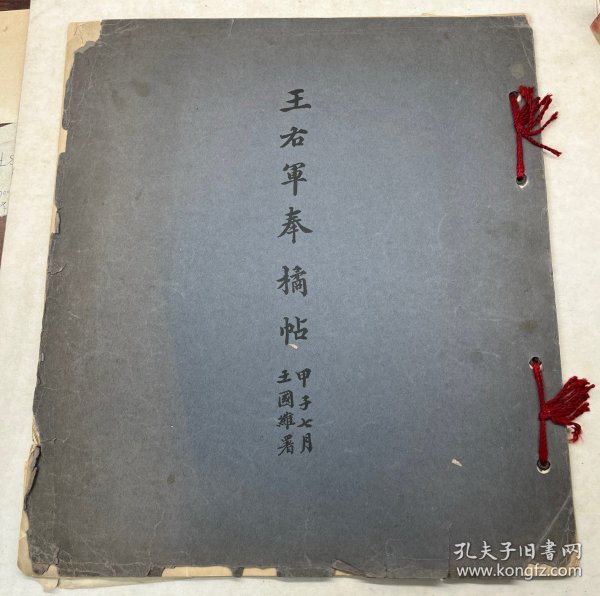 王右軍奉橘帖
甲子七月
王國維署
孔夫子旧書网
www.kongfz.com